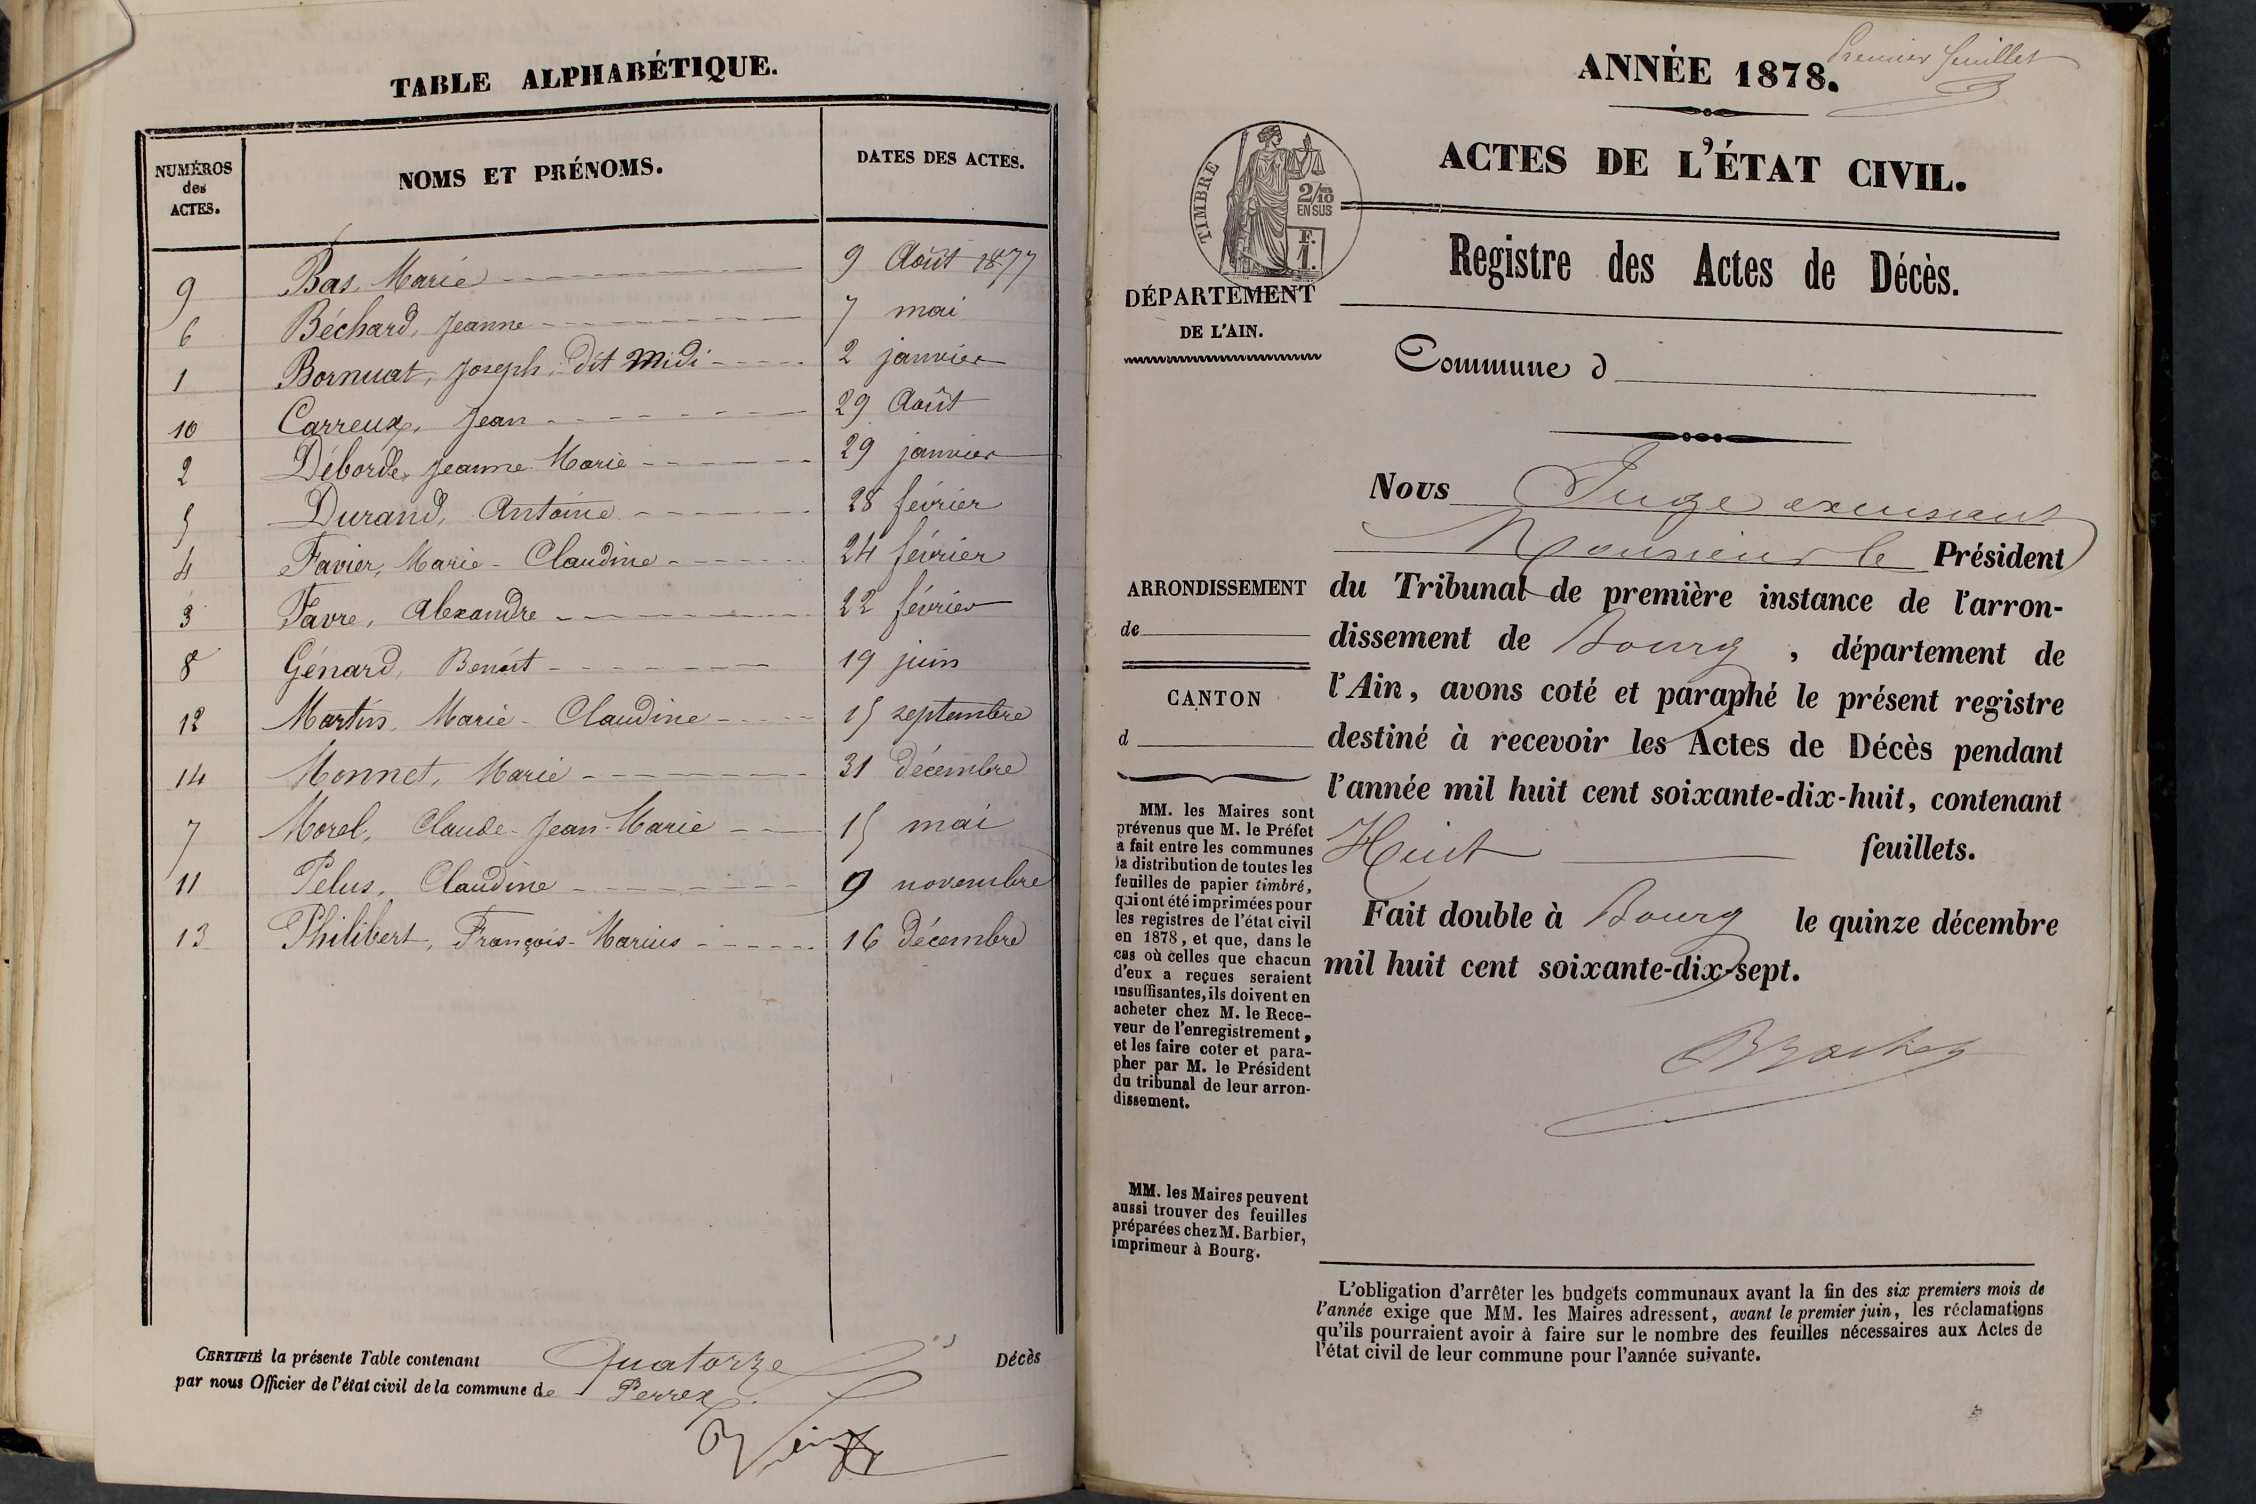 TABLE ALPHABÉTIQUE.
NUMÉROS
des
ACTES.
NOMS ET PRÉNOMS.
DATES DES ACTES.
9 Bas, Marie 9 Août 1877
6 Béchard, Jeanne 7 mai
1 Bornuat, Joseph, dit Midi 2 janvier
10 Carreux, Jean 29 Août
2 Déborde, Jeanne Marie 29 janvier
5 Durand, Antoine 28 février
4 Favier, Marie-Claudine 24 février
3 Favre, Alexandre 22 février
8 Génard, Benoit 19 juin
12 Martin, Marie-Claudine 15 septembre
14 Monnet, Marie 31 décembre
7 Morel, Claude-Jean-Marie 15 mai
11 Pelus, Claudine 9 novembre
13 Philibert, François-Marius 16 décembre
CERTIFIÉ la présente Table contenant Quatorze Décès
par nous Officier de l'état civil de la commune de Perrex.
Premier feuillet
ANNÉE 1878.
ACTES DE L'ÉTAT CIVIL.
TIMBRE
2/10 EN SUS
F. 1.
Registre des Actes de Décès.
DÉPARTEMENT
DE L'AIN.
Commune d
ARRONDISSEMENT
de
CANTON
d
MM. les Maires sont
prévenus que M. le Préfet
a fait entre les communes
la distribution de toutes les
feuilles de papier timbré,
qui ont été imprimées pour
les registres de l'état civil
en 1878, et que, dans le
cas où celles que chacun
d'eux a reçues seraient
insuffisantes, ils doivent en
acheter chez M. le Rece-
veur de l'enregistrement,
et les faire coter et para-
pher par M. le Président
du tribunal de leur arron-
dissement.
MM. les Maires peuvent
aussi trouver des feuilles
préparées chez M. Barbier,
imprimeur à Bourg.
Nous Juge excusant
Monsieur le Président
du Tribunal de première instance de l'arron-
dissement de Bourg, département de
l'Ain, avons coté et paraphé le présent registre
destiné à recevoir les Actes de Décès pendant
l'année mil huit cent soixante-dix-huit, contenant
Huit feuillets.
Fait double à Bourg le quinze décembre
mil huit cent soixante-dix-sept.
L'obligation d'arrêter les budgets communaux avant la fin des six premiers mois de
l'année exige que MM. les Maires adressent, avant le premier juin, les réclamations
qu'ils pourraient avoir à faire sur le nombre des feuilles nécessaires aux Actes de
l'état civil de leur commune pour l'année suivante.